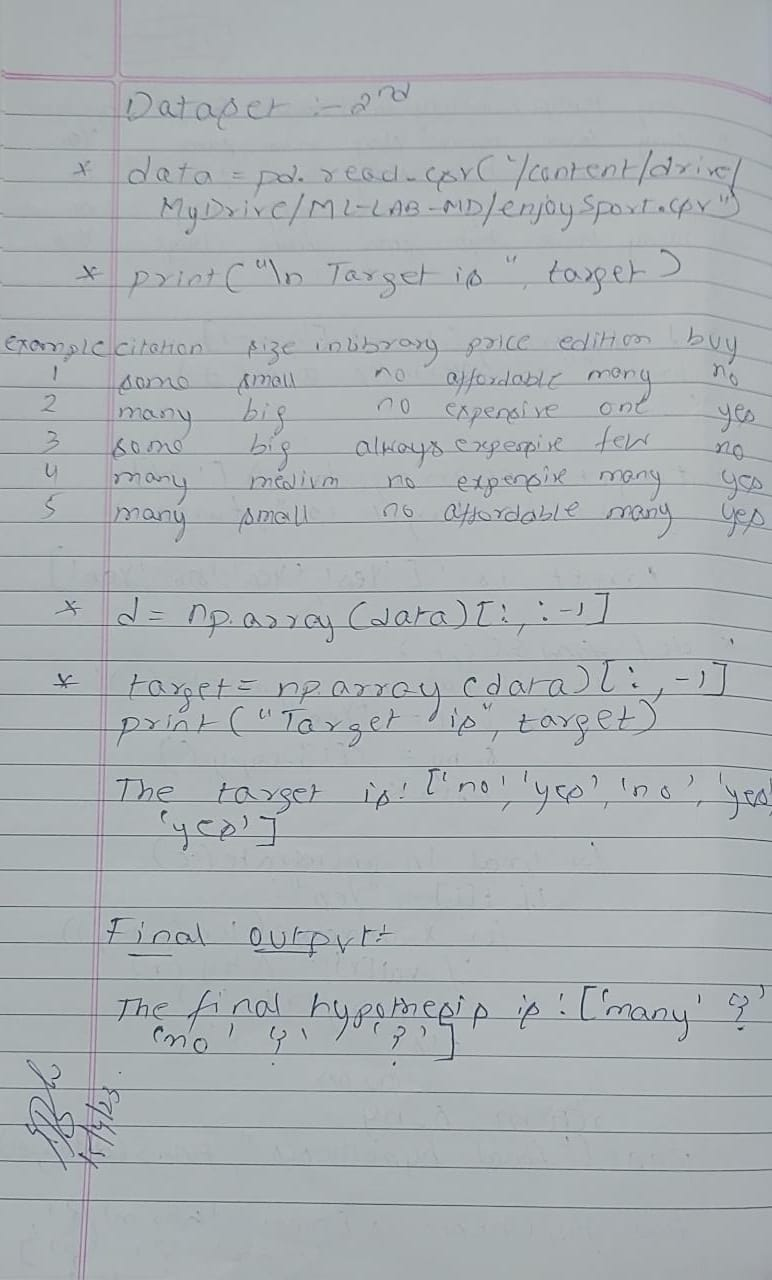 Dataset :- 2nd
* data = pd.read_csv("/content/drive/
MyDrive/ML-LAB-MD/enjoysport.csv")
* print("\n Target is", target)
example citation size inlibrary price edition buy
1 some small no affordable many no
2 many big no expensive one yes
3 some big always expensive few no
4 many medium no expensive many yes
5 many small no affordable many yes
* d = np.array(data)[:, :-1]
* target = np.array(data)[:, -1]
print("Target is", target)
The target is: ['no', 'yes', 'no', 'yes
'yes']
Final output:
The final hypothesis is: ['many' '?'
'no' '?' '?']
15/4/23.